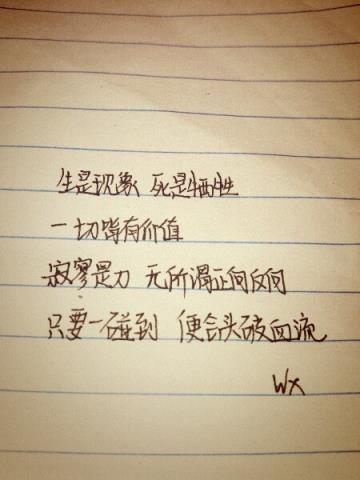 生是现象 死是牺牲
一切皆有价值
寂寥是力 无所谓正向反向
只要一碰到 便会头破血流
WX